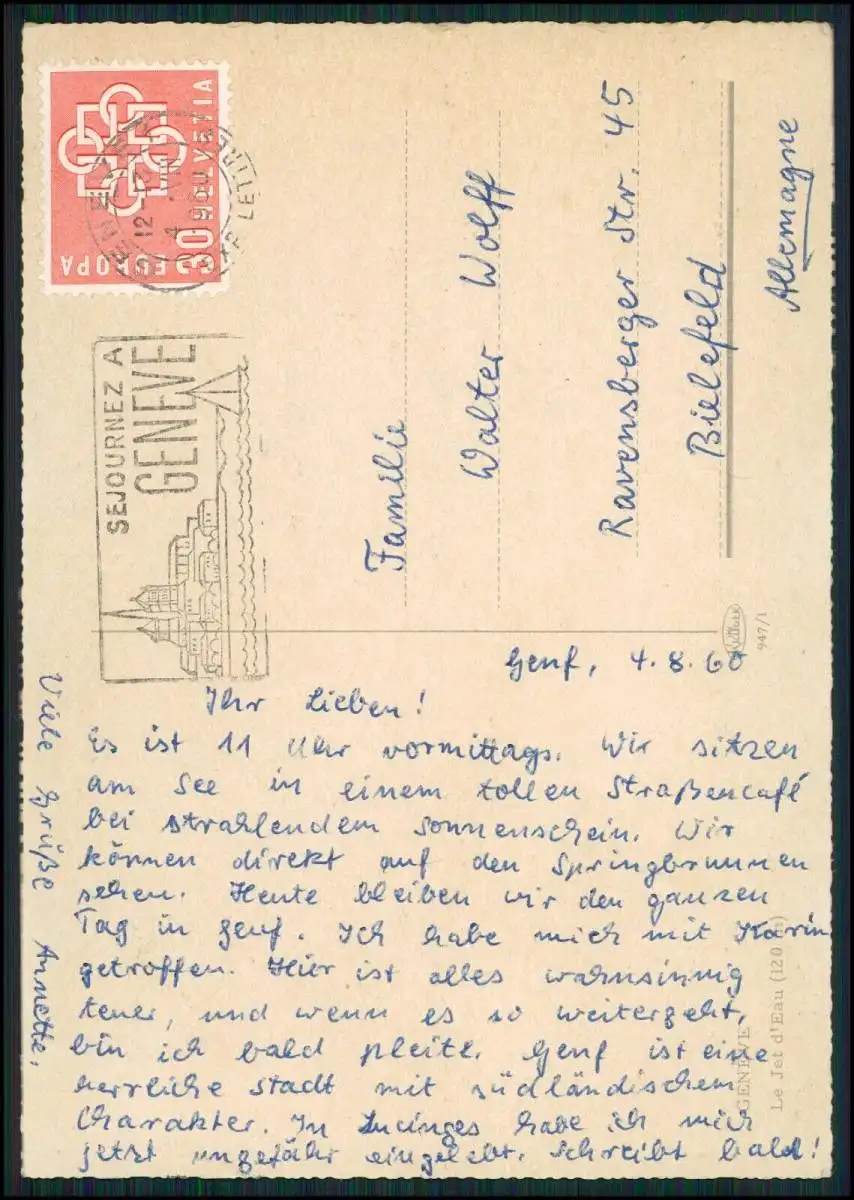 Genf, 4.8.60
Ihr Lieben!
Es ist 11 Uhr vormittags. Wir sitzen
am See in einem tollen Straßencafé
bei strahlendem Sonnenschein. Wir
können direkt auf den Springbrunnen
sehen. Heute bleiben wir den ganzen
Tag in Genf. Ich habe mich mit Karin
getroffen. Hier ist alles wahnsinnig
teuer, und wenn es so weitergeht,
bin ich bald pleite. Genf ist eine
herrliche Stadt mit südländischem
Charakter. In Lucinges habe ich mich
jetzt ungefähr eingelebt. Schreibt bald!
Viele Grüße Annette.
Familie
Walter Wolff
Ravensberger Str. 45
Bielefeld
Allemagne
HELVETIA
EUROPA
30
12
4.VIII
1960
EXP LETTRES
SEJOURNEZ A
GENEVE
947/1
GENEVE
Le Jet d'Eau (120 m)